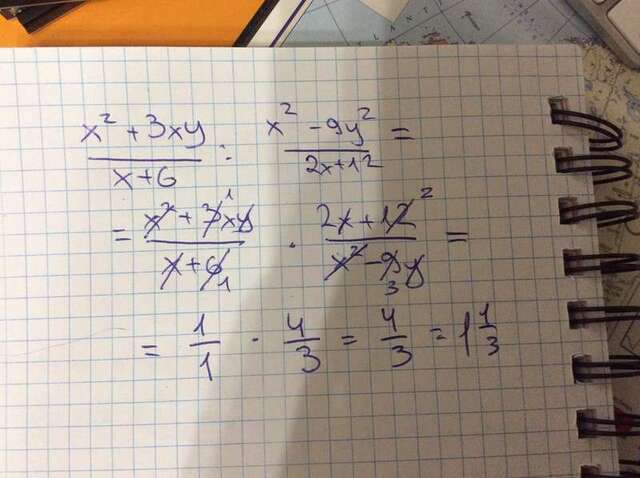 x² + 3xy / x+6 : x² - 9y² / 2x+12 =
= x² + 3xy / x+6 1 1 · 2x+12 2 / x² - 9y 3 =
= 1/1 · 4/3 = 4/3 = 1 1/3